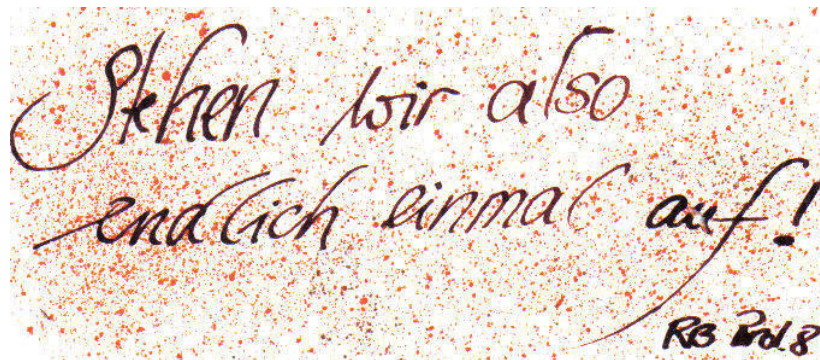 Stehen wir also
endlich einmal auf!
RB Prol. 8